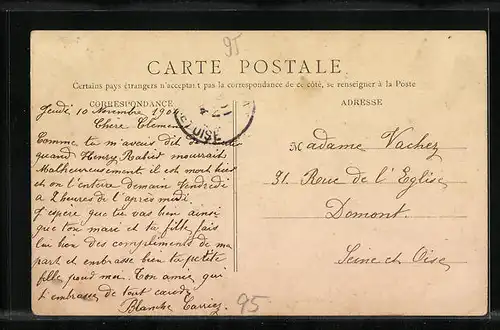 95
CARTE POSTALE
Certains pays étrangers n'acceptant pas la correspondance de ce côté, se renseigner à la Poste
CORRESPONDANCE
ADRESSE
Jeudi 10 Novembre 19
Chère Clemence
Comme tu m'avais dit
quand Henry Rabid mourrait
Malheureusement il est mort hier
et on l'enterre demain vendredi
a 2 heures de l'après midi
J'espère que tu vas bien ainsi
que ton mari et ta fille fais
lui bien des compliments de ma
part et embrasse bien ta petite
fille pour moi. Ton amie qui
t'embrasse de tout cœur
Blanche Carriez
OISE
Madame Vachez
31. Rue de l'Eglise
Domont.
Seine et Oise
95